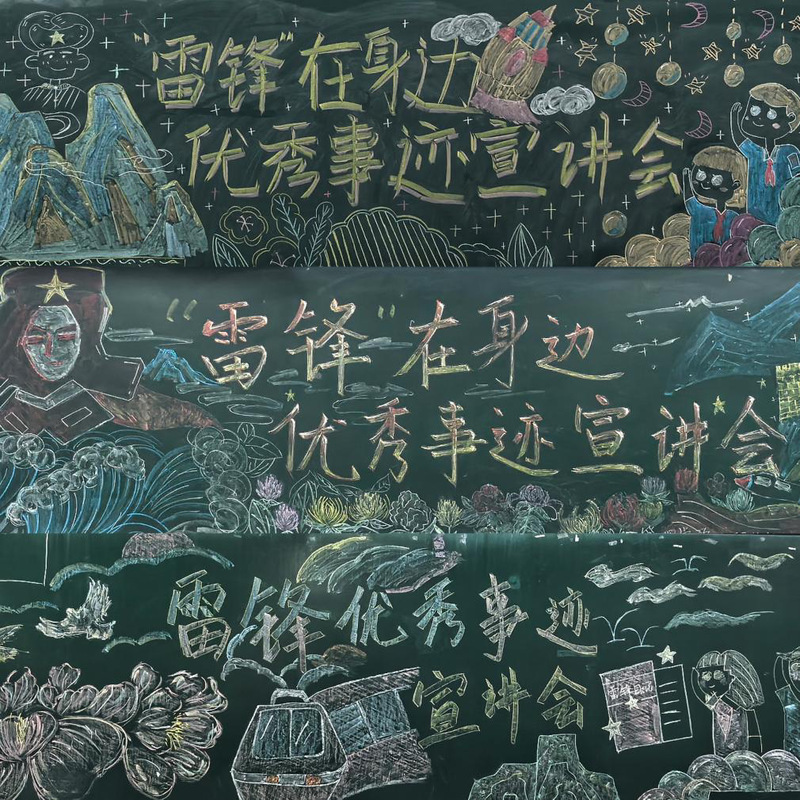 “雷锋”在身边
优秀事迹宣讲会
“雷锋”在身边
优秀事迹宣讲会
雷锋优秀事迹
宣讲会